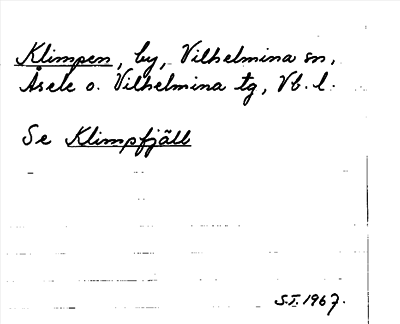 Klimpen, by, Vilhelmina sn,
Åsele o. Vilhelmina tg, Vb. l.
Se Klimpfjäll
S.I. 1967.